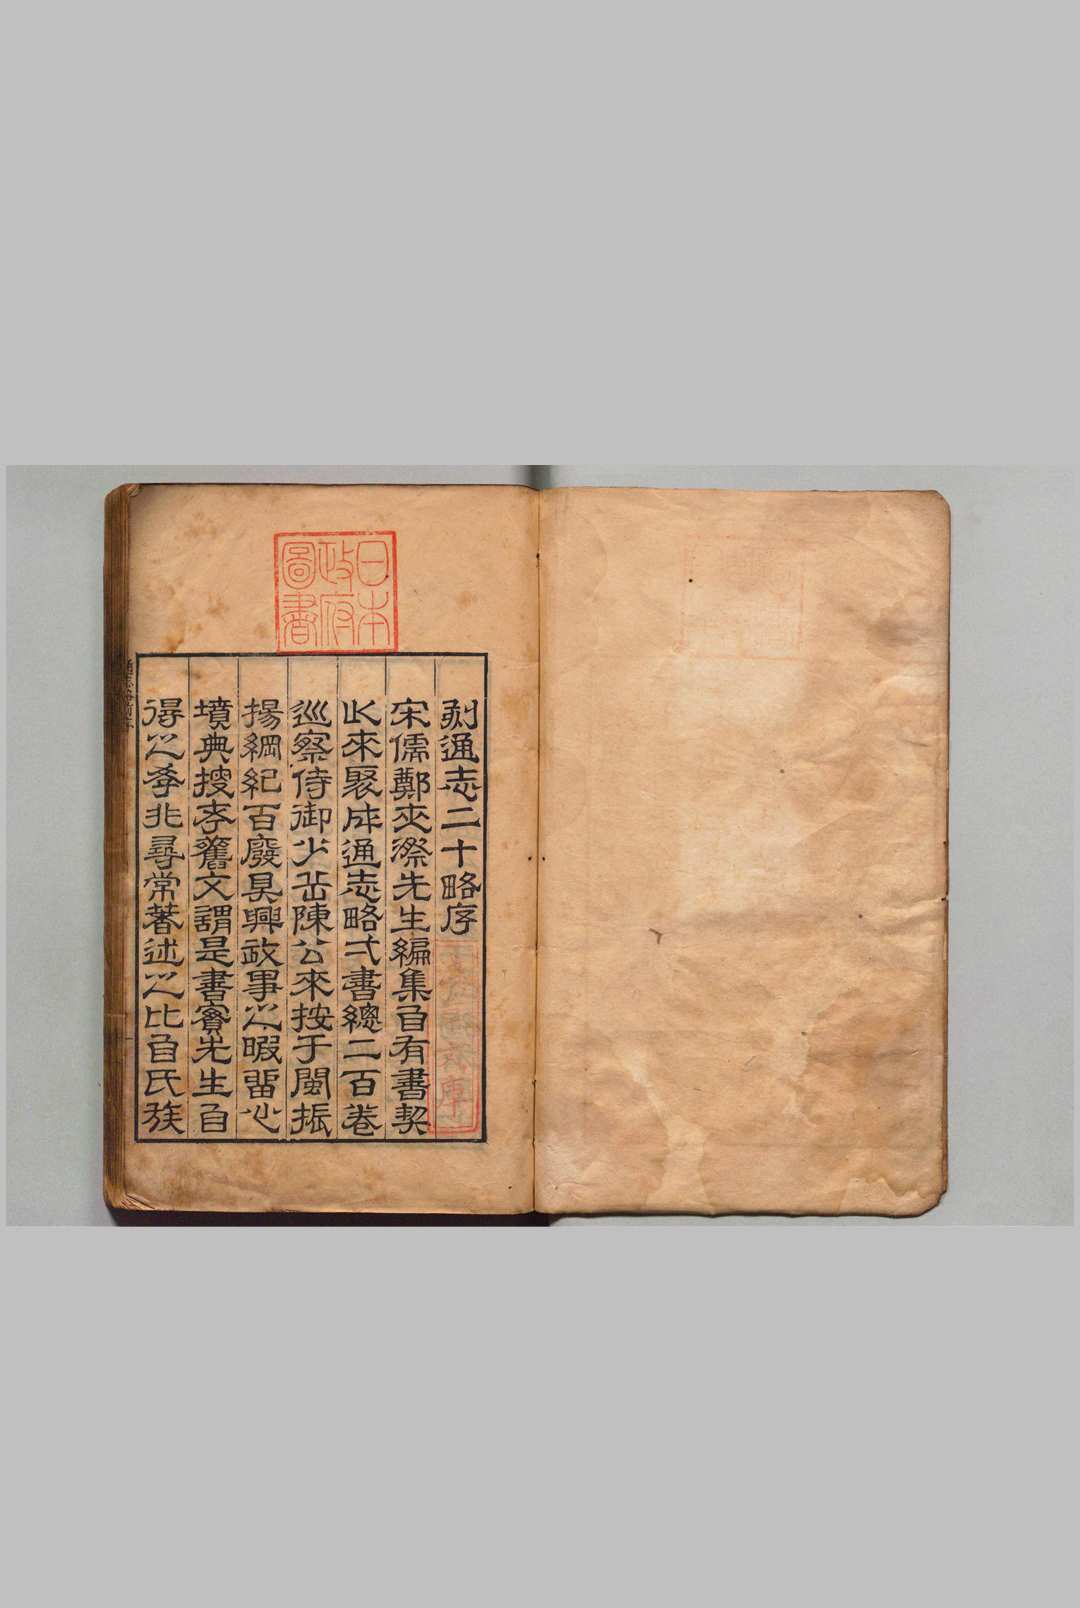 日本
政府
圖書
刻通志二十略序
宋儒鄭夾漈先生編集自有書契
以來聚成通志略弌書總二百卷
巡察侍御少岳陳公來按于閩振
揚綱紀百廢具興政事之暇留心
墳典搜孝舊文謂是書實先生自
得之季非尋常著述之比自氏族